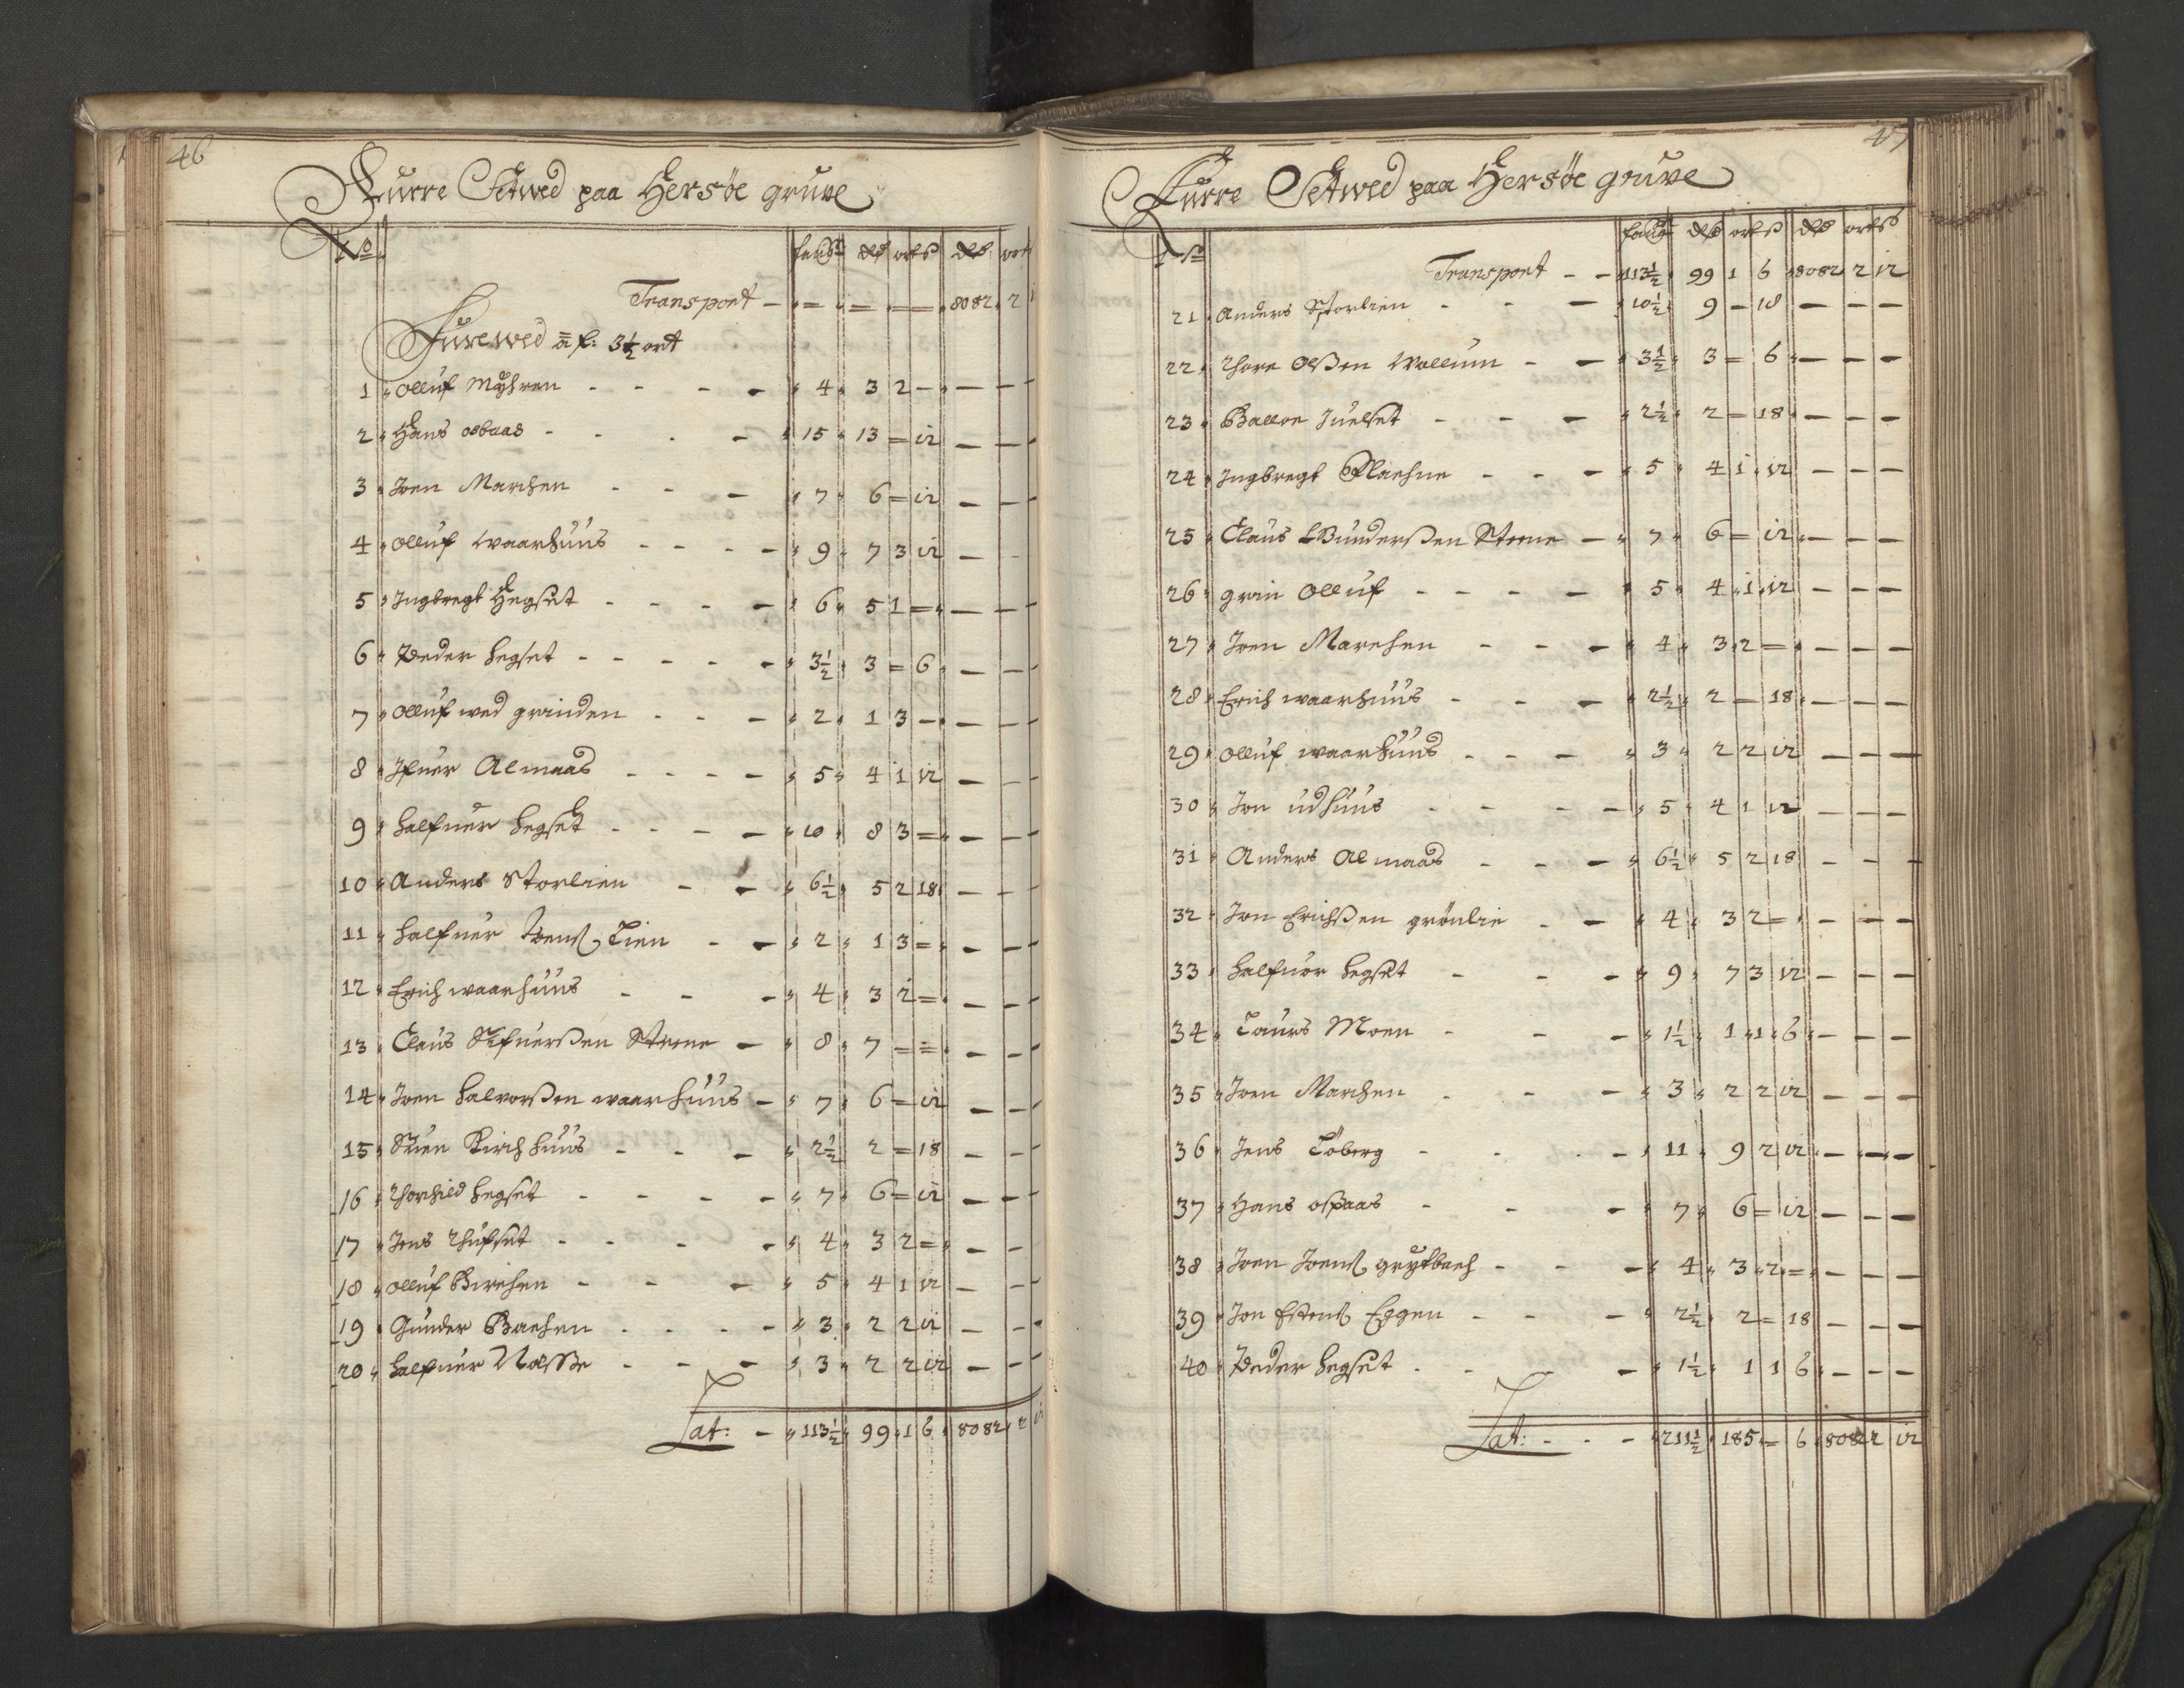 46
Furre Setwed paa Hersöe gruve
No faug dlr ort s dlr ort
Transport - = = = = 8082 2
Furewed a f: 3½ ort
1 Olluf Myhren - - - - 4 3 2 - - -
2 Hans osbaas - - - - 15 13 = 12 - -
3 Joen Marchen - - - 7 6 = 12 - -
4 olluf waarhuus - - - - 9 7 3 12 - -
5 Ingbregt Hegset - - - - 6 5 1 = - -
6 Peder hegset - - - - - 3½ 3 = 6 - -
7 olluf wed grinden - - - 2 1 3 - - -
8 Ifuer Almaas - - - - 5 4 1 12 - -
9 halfuer hegset - - - - 10 8 3 = - -
10 Anders Storlien - - 6½ 5 2 18 - -
11 halfuer Joens. Lien - - 2 1 3 = - -
12 Erich waarhuus - - - 4 3 2 = - -
13 Claus Sifuerssen Steene - 8 7 = = - -
14 Joen halvorssen waarhuus - 7 6 = 12 - -
15 Suen Kirchhuus - - - 2½ 2 = 18 - -
16 Thorkild hegset - - - - 7 6 = 12 - -
17 Jens Thufset - - - - 4 3 2 = - -
18 olluf Birchen - - - 5 4 1 12 - -
19 Gunder Bachen - - - - 3 2 2 12 - -
20 halfuer Nässe - - - 3 2 2 12 - -
Lat: - 113½ 99 1 6 8082 2 12
47
Furre Setwed paa Hersöe gruve
No faug dlr ort s dlr ort s
Transport - - 113½ 99 1 6 8082 2 12
21 Anders Storlien - - - 10½ 9 - 18 - - -
22 Thore Olssen Wollum - - 3½ 3 = 6 - - -
23 Balloe Juelset - - - 2½ 2 = 18 - - -
24 Ingbregt Flaehne - - - 5 4 1 12 - - -
25 Claus Gunderssen Steene - 7 6 = 12 - - -
26 grin Olluf - - - - 5 4 1 12 - - -
27 Joen Marchen - - - 4 3 2 = - - -
28 Erich waarhuus - - - 2½ 2 - 18 - - -
29 olluf waarhuus - - - 3 2 2 12 - - -
30 Jon udhuus - - - - 5 4 1 12 - - -
31 Anders Almaas - - - 6½ 5 2 18 - - -
32 Jon Erichssen grönlie - - 4 3 2 = - - -
33 halfuor hegset - - - 9 7 3 12 - - -
34 Laurs Moen - - - 1½ 1 1 6 - - -
35 Joen Marchen - - - 3 2 2 12 - - -
36 Jens Töberg - - - - 11 9 2 12 - - -
37 Hans ospaas - - - 7 6 = 12 - - -
38 Joen Joens. grytbach - - - 4 3 2 = - - -
39 Jon Estens. Eggen - - - 2½ 2 = 18 - - -
40 Peder hegset - - - - 1½ 1 1 6 - - -
Lat: - - - 211½ 185 = 6 8082 2 12